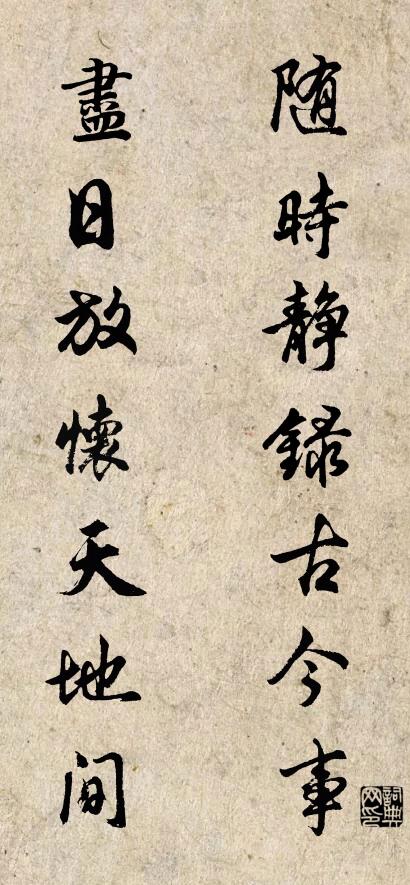 随時静録古今事
盡日放懷天地间
詞典网印